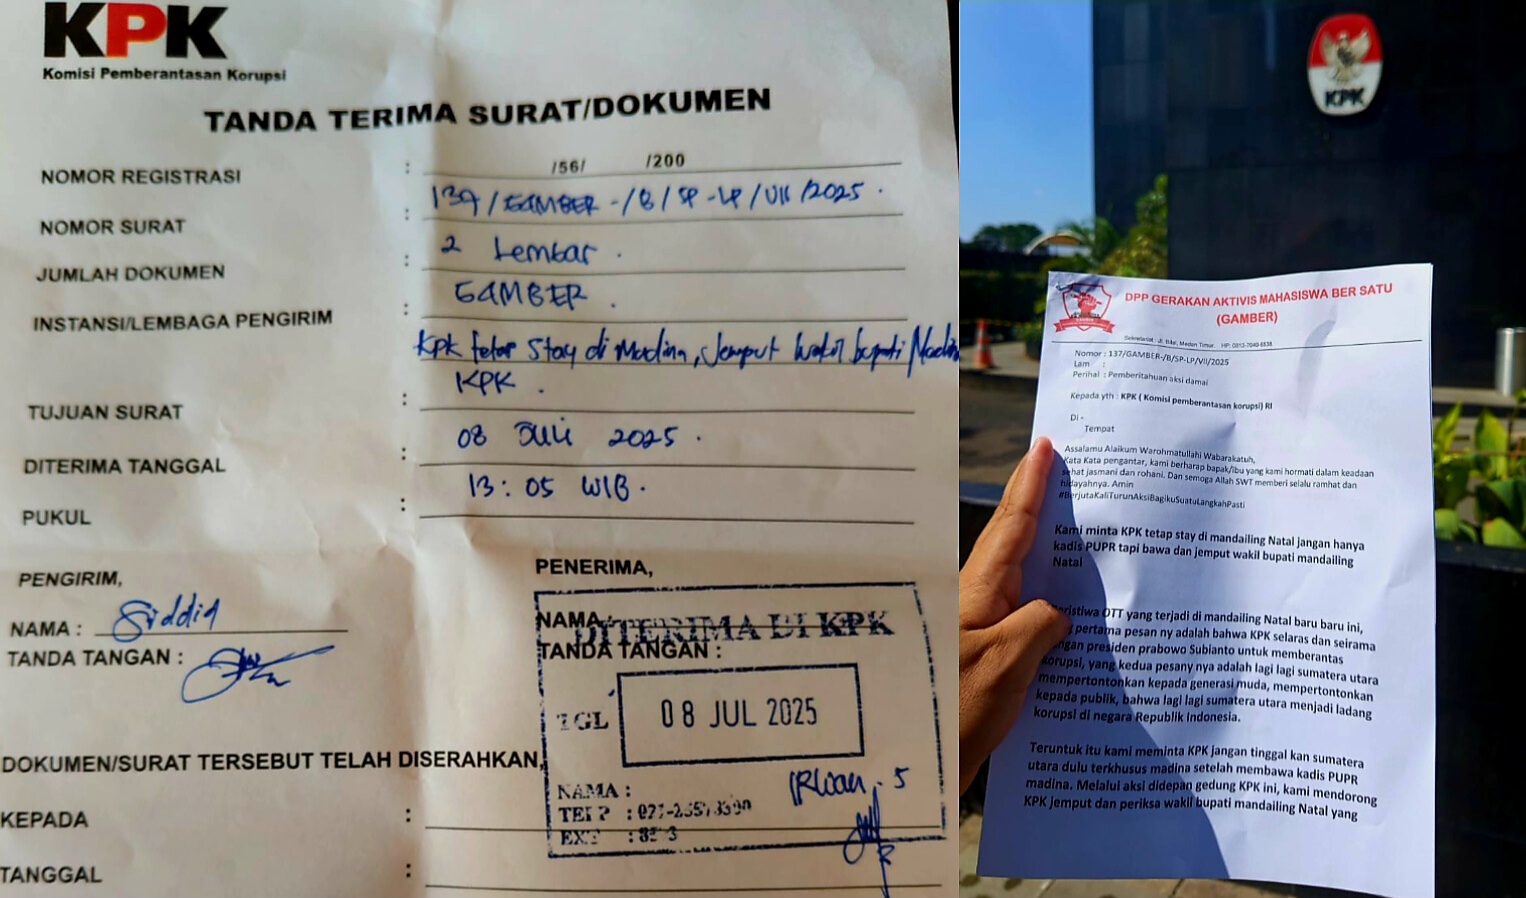 KPK
Komisi Pemberantasan Korupsi
TANDA TERIMA SURAT/DOKUMEN
NOMOR REGISTRASI : /56/ /200
NOMOR SURAT : 137/GAMBER-/B/SP-LP/VII/2025.
JUMLAH DOKUMEN : 2 Lembar.
INSTANSI/LEMBAGA PENGIRIM : GAMBER.
Kpk tetap stay di Madina, Jemput wakil bupati Madina
TUJUAN SURAT : KPK.
DITERIMA TANGGAL : 08 JULI 2025.
PUKUL : 13:05 WIB.
PENGIRIM,
NAMA : Siddiq
TANDA TANGAN :
PENERIMA,
NAMA
TANDA TANGAN :
DITERIMA DI KPK
TGL 08 JUL 2025
NAMA :
TELP :
EXT :
DOKUMEN/SURAT TERSEBUT TELAH DISERAHKAN,
KEPADA :
TANGGAL :
KPK
DPP GERAKAN AKTIVIS MAHASISWA BER SATU
(GAMBER)
Nomor : 137/GAMBER-/B/SP-LP/VII/2025
Lam :
Perihal : Pemberitahuan aksi damai
Kepada yth : KPK ( Komisi pemberantasan korupsi) RI
Di -
Tempat
Assalamu Alaikum Warohmatullahi Wabarakatuh,
Kata Kata pengantar, kami berharap bapak/ibu yang kami hormati dalam keadaan
sehat jasmani dan rohani. Dan semoga Allah SWT memberi selalu ramhat dan
hidayahnya. Amin
#BerjutaKaliTurunAksiBagikuSuatuLangkahPasti
Kami minta KPK tetap stay di mandailing Natal jangan hanya
kadis PUPR tapi bawa dan jemput wakil bupati mandailing
Natal
Peristiwa OTT yang terjadi di mandailing Natal baru baru ini,
pertama pesan ny adalah bahwa KPK selaras dan seirama
dengan presiden prabowo Subianto untuk memberantas
korupsi, yang kedua pesany nya adalah lagi lagi sumatera utara
mempertontonkan kepada generasi muda, mempertontonkan
kepada publik, bahwa lagi lagi sumatera utara menjadi ladang
korupsi di negara Republik Indonesia.
Teruntuk itu kami meminta KPK jangan tinggal kan sumatera
utara dulu terkhusus madina setelah membawa kadis PUPR
madina. Melalui aksi didepan gedung KPK ini, kami mendorong
KPK jemput dan periksa wakil bupati mandailing Natal yang